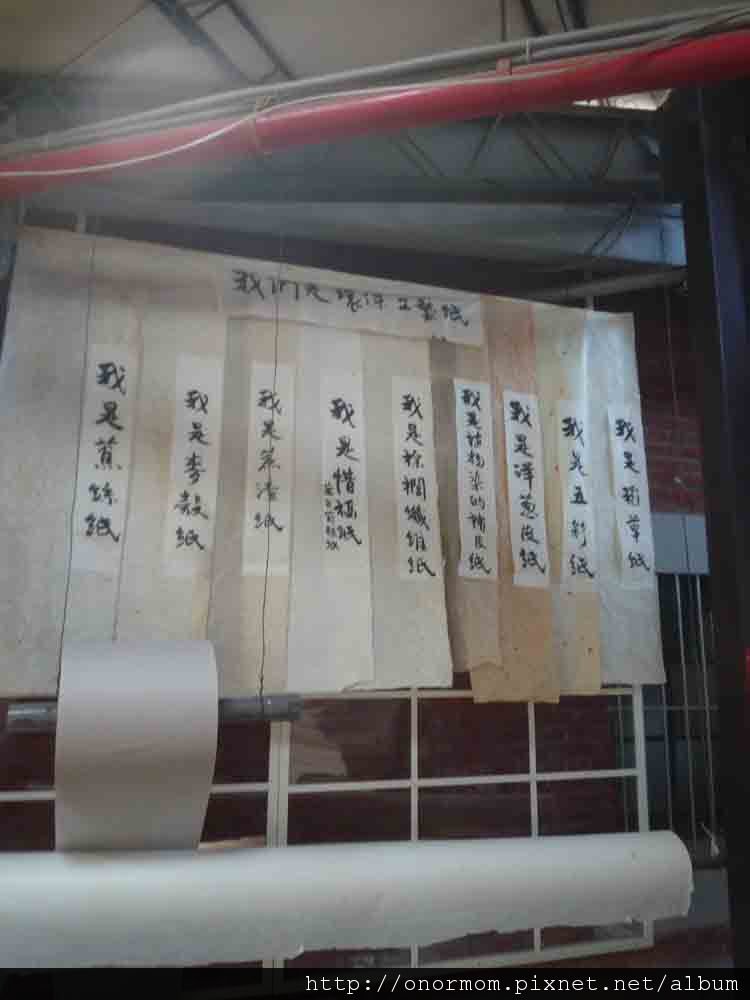 我们是環保工藝紙
我是蕉絲紙
我是麥殼紙
我是茶渣紙
我是惜福紙
我是棕櫚纖維紙
我是植物染的楮皮紙
我是洋蔥皮紙
我是五彩紙
我是稻草紙
http://onormom.pixnet.net/album